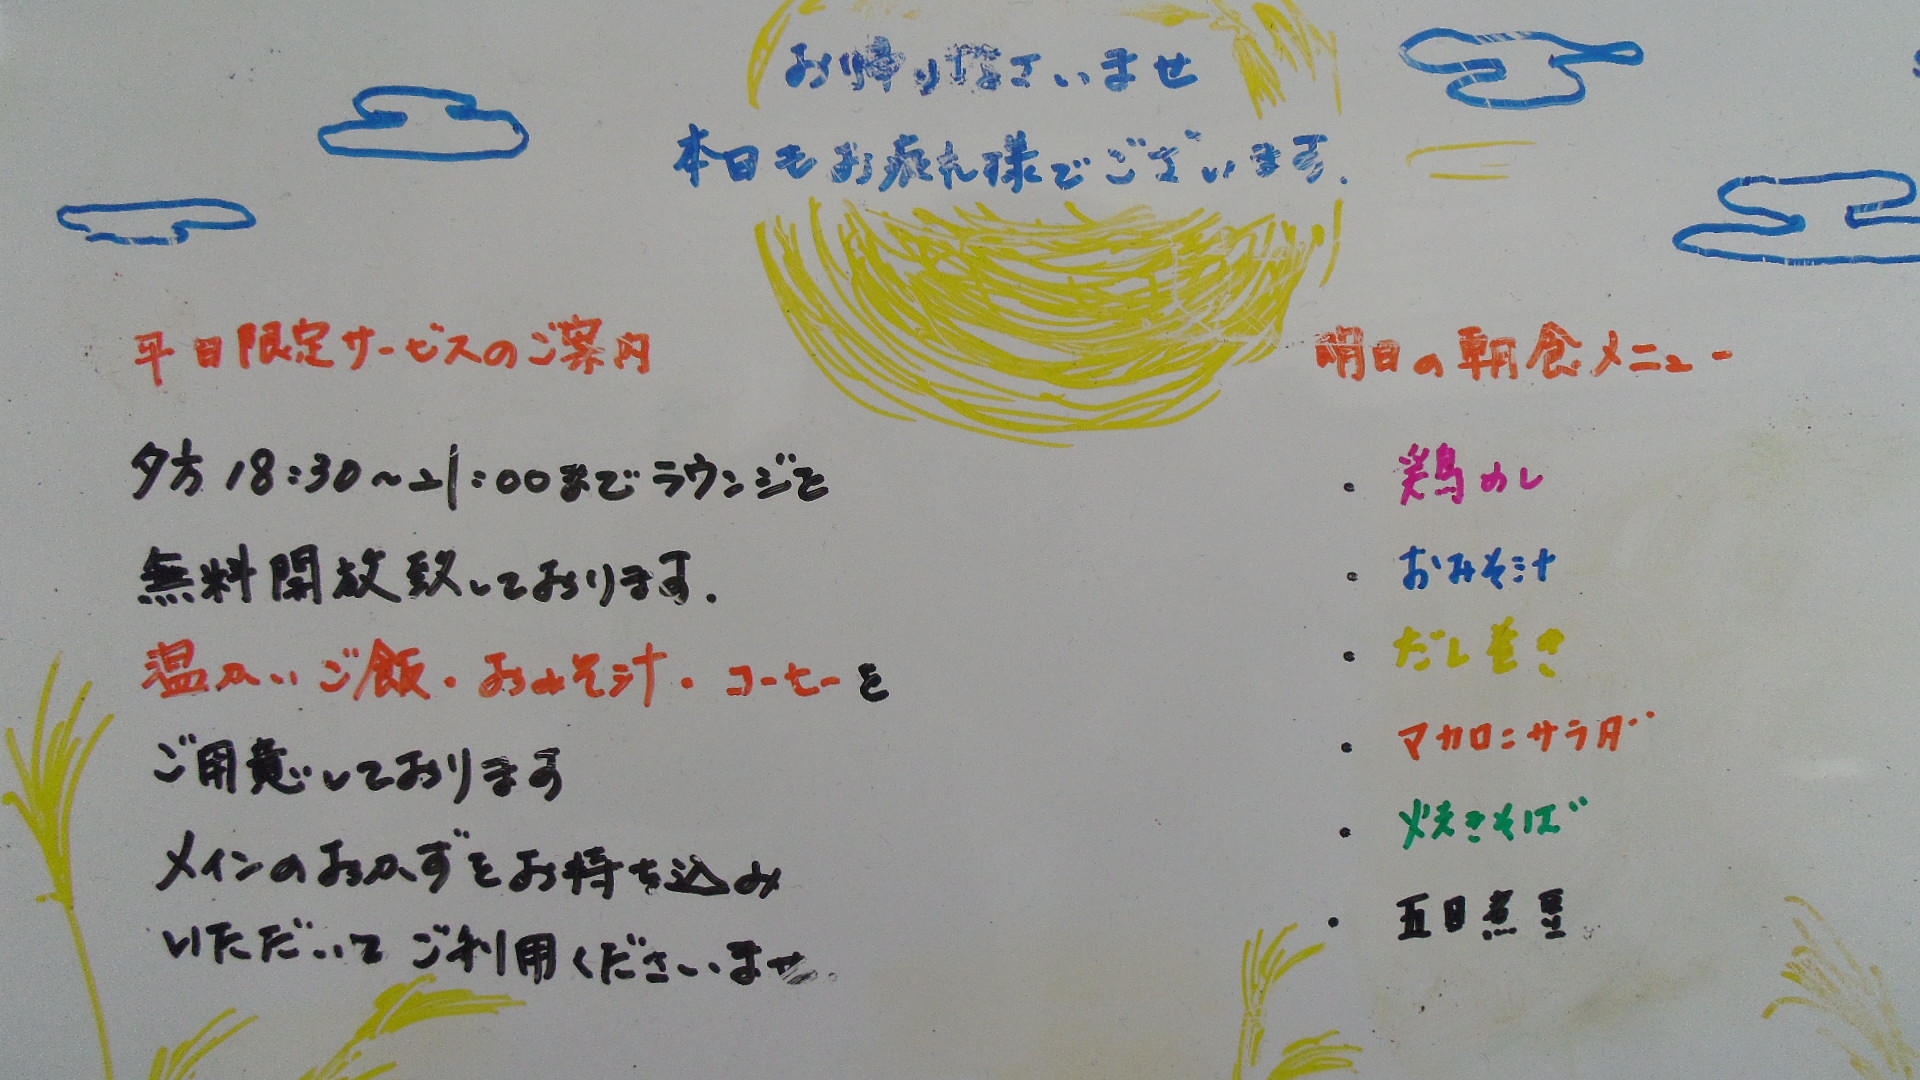 お帰り なさいませ
本日もお疲れ様でございます.
平日限定サービスのご案内
夕方18:30~21:00までラウンジを
無料開放致しております.
温かいご飯・おみそ汁・コーヒーを
ご用意しております
メインのおかずをお持ち込み
いただいてご利用くださいませ.
明日の朝食メニュー
・鶏めし
・おみそ汁
・だし巻き
・マカロニサラダ
・焼きそば
・五目煮豆